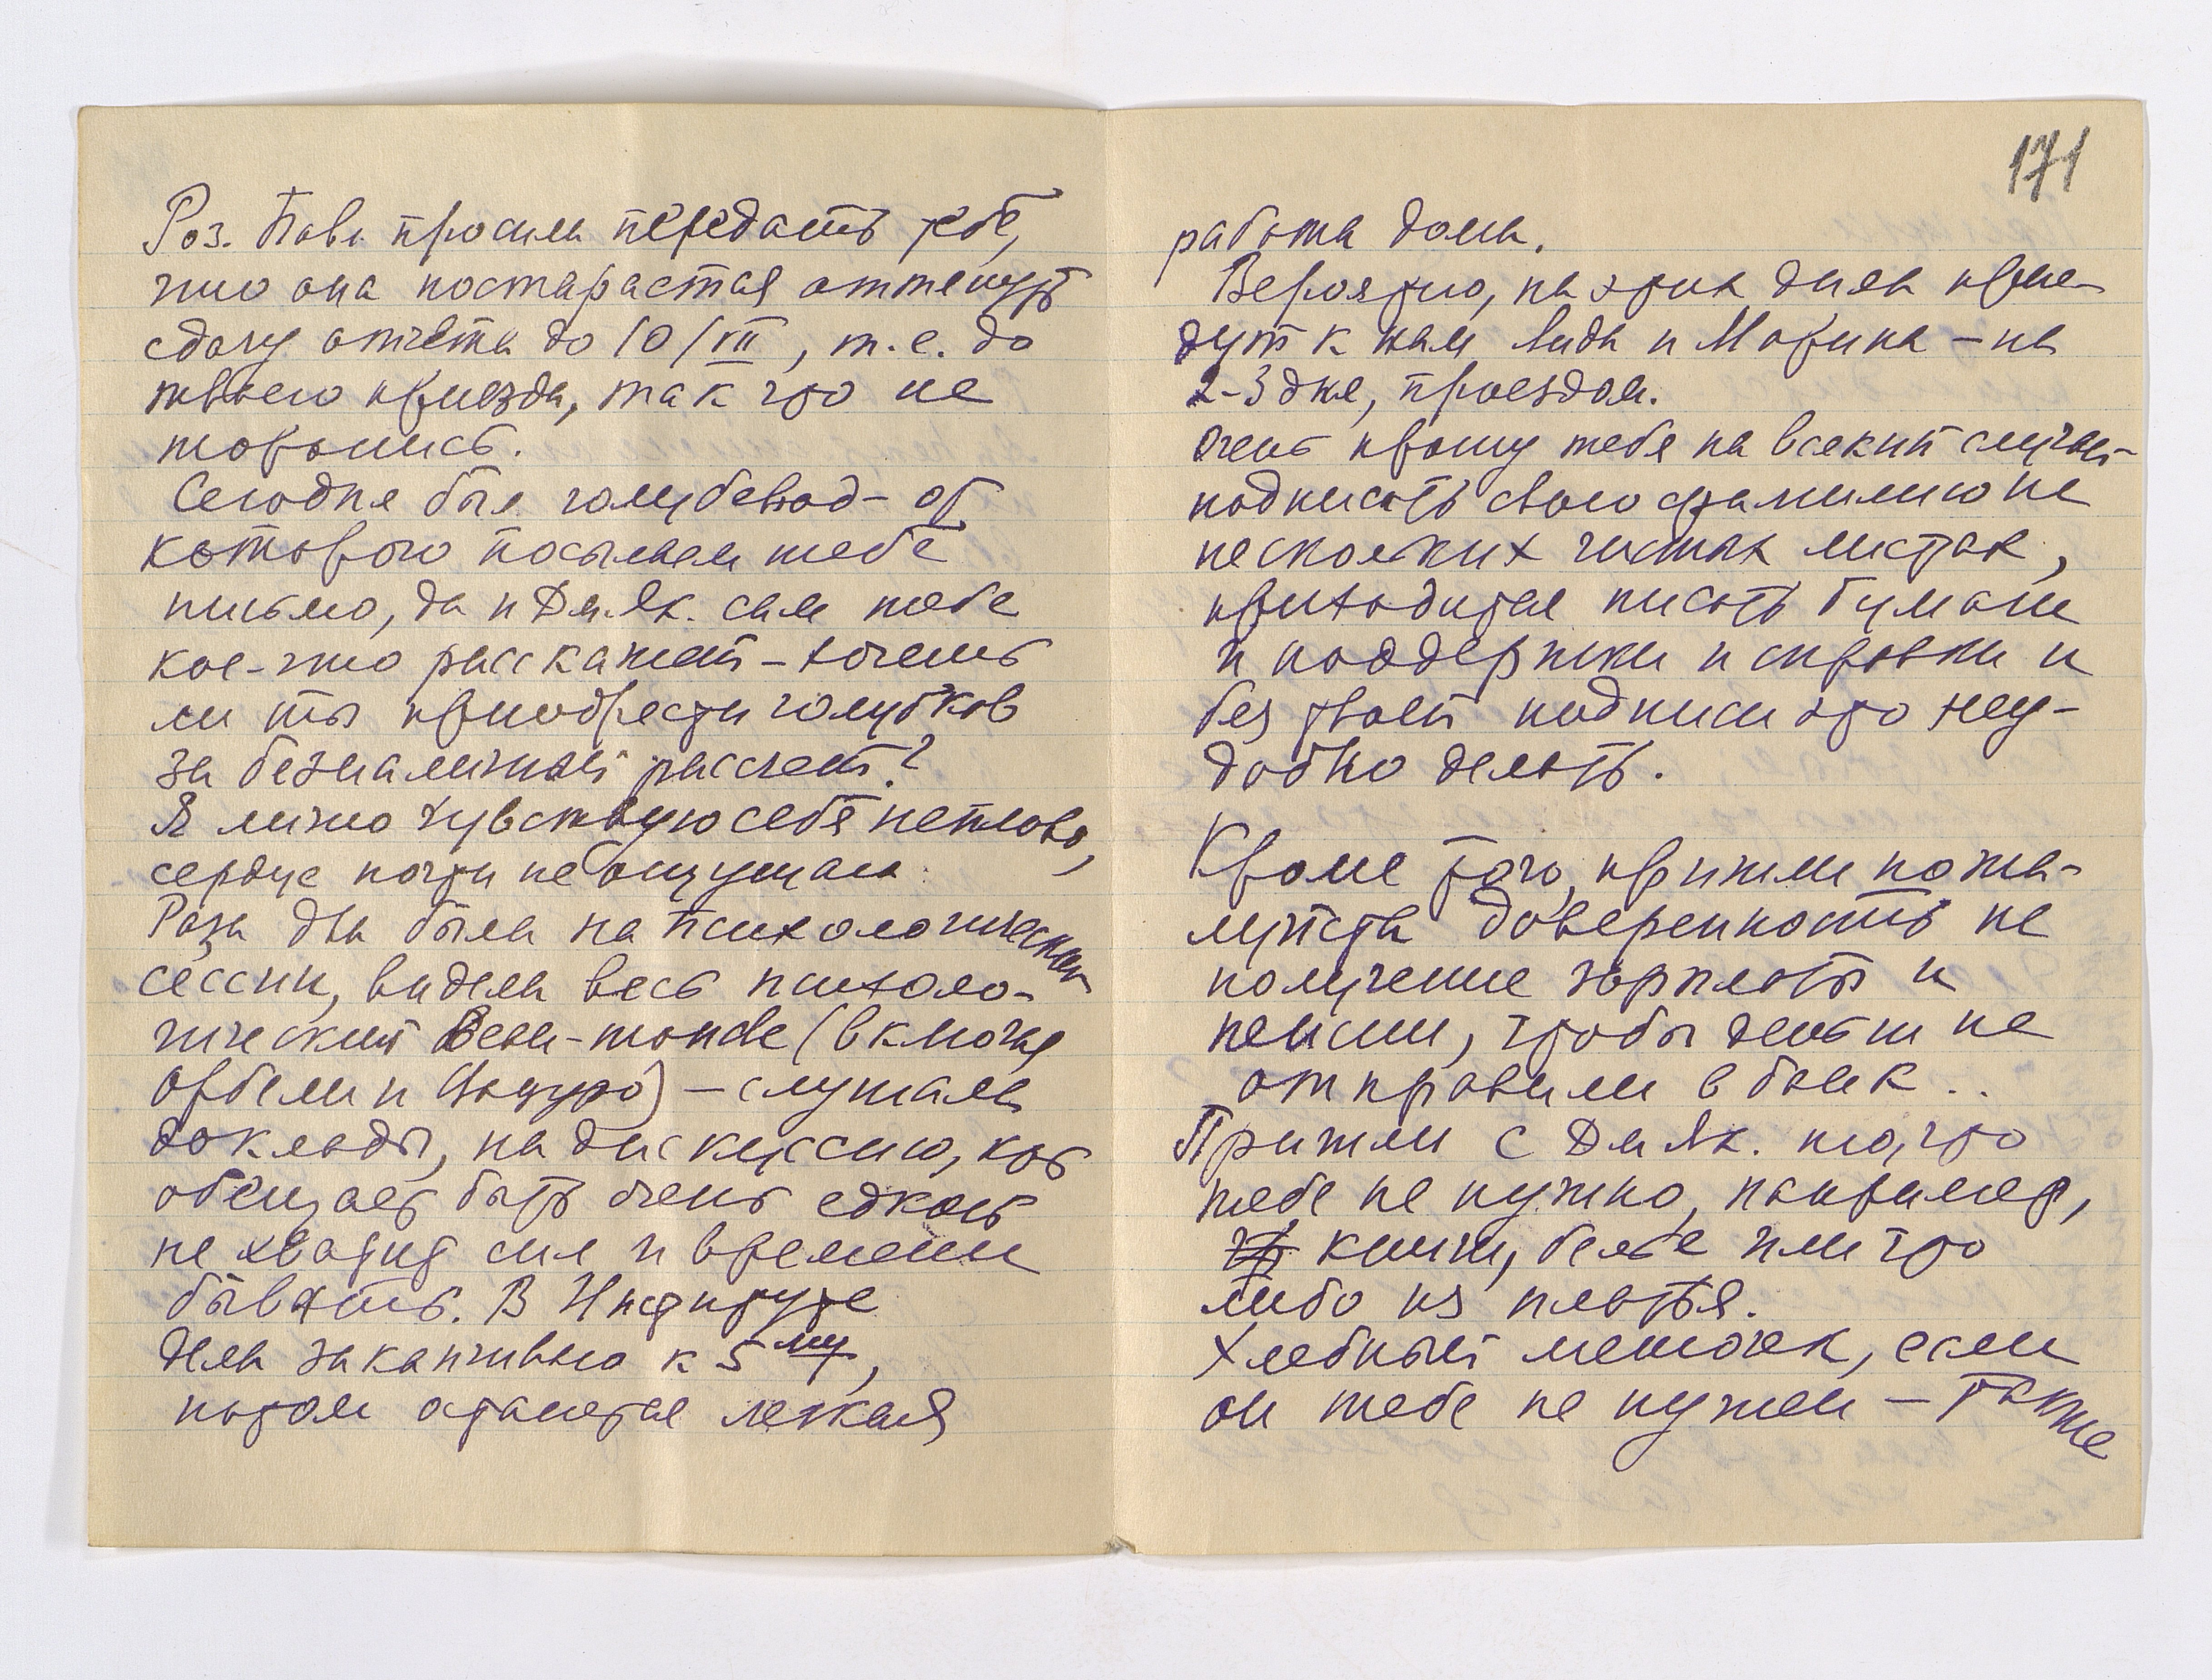 Роз. Павл. просила передать тебе,
что она постарается оттянуть
сдачу отчёта до 10/VII, т.е. до
твоего приезда, так что не
торопись.
Сегодня был голубевод – от
которого посылаем тебе
письмо, да и Дм. Як. сам тебе
кое-что расскажет – хочешь
ли ты приобрести голубков
за безналичный рассчет?
Я лично чувствую себя неплохо,
сердце почти не ощущаю.
Раза два была на психологической
сессии, видела весь психоло-
гический Beau-monde (включая
Орбели и ) – слушала
доклады, на дискуссию, кот
обещает быть очень едкой
не хватит сил и времени
бывать. В Институте
дела заканчиваю к 5му,
потом останется легкая
171
работа дома.
Вероятно, на этих днях прие-
дут к нам Лида и Марина – на
2-3 дня, проездом.
Очень прошу тебя на всякий случай
подписать свою фамилию на
нескольких чистых листах,
приходится писать бумаги
и поддержки и справки и
без твоей подписи это неу-
добно делать.
Кроме того, пришли пожа-
луйста доверенность на
получение зарплаты и
пенсии, чтобы деньги не
отправили в банк..
Пришли с Дм Як. то, что
тебе не нужно, например,
книги, белье или что
либо из платья.
Хлебный мешочек, если
он тебе не нужен – также